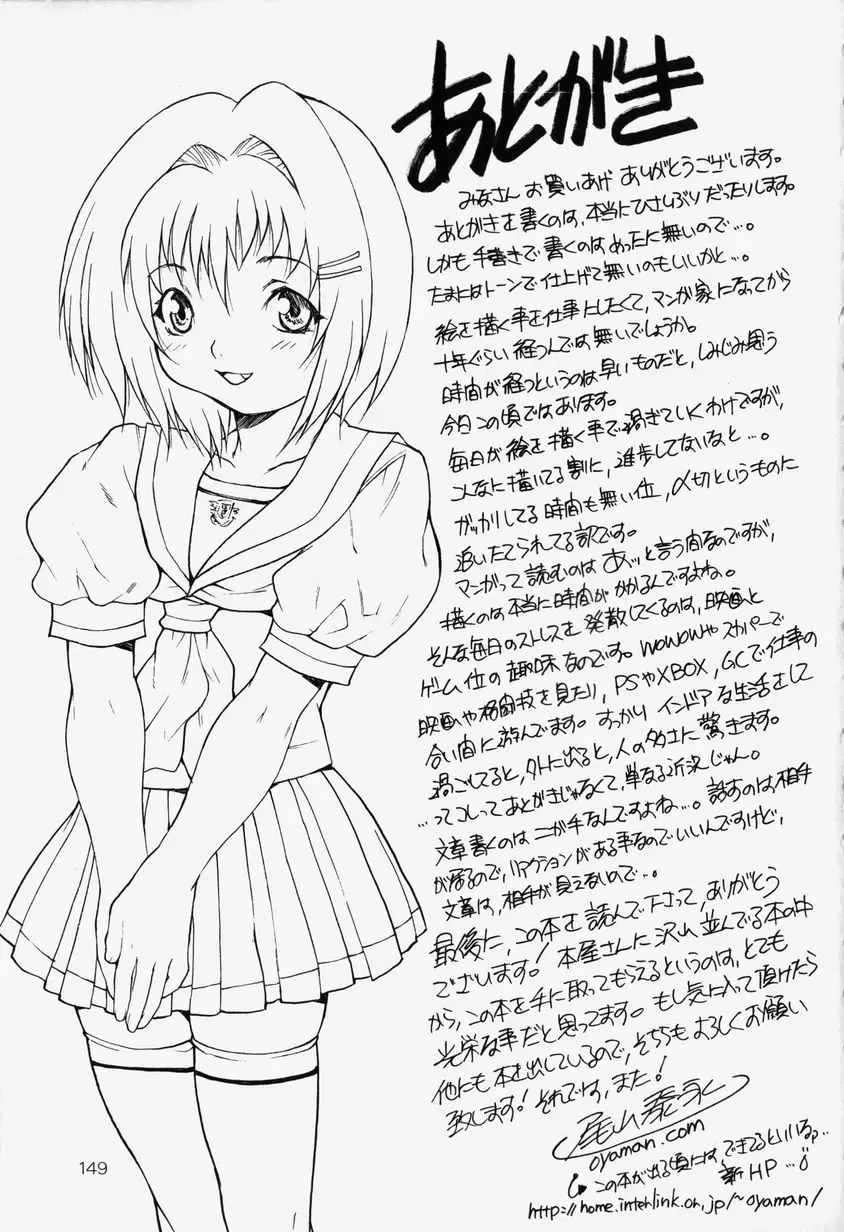 あとがき
みなさん お買いあげ ありがとうございます。
あとがきを書くのは、本当にひさしぶりだったりします。
しかも手書きで書くのはめったに無いので…。
たまにはトーンで仕上げて無いのもいいかと…。
絵を描く事を仕事にしたくて、マンガ家になってから
十年ぐらい経つんでは無いでしょうか。
時間が経つというのは早いものだと、しみじみ思う
今日この頃ではあります。
毎日が絵を描く事で過ぎていくわけですが、
こんなに描いてる割に、進歩してないなと…。
ガッカリしてる時間も無い位、〆切というものに
追いたてられてる訳です。
マンガって読むのは あッと言う間なのですが、
描くのは本当に時間がかかるんですよね。
そんな毎日のストレスを発散してくるのは、映画と
ゲーム位の趣味なのです。WOWOWやスカパーで
映画や格闘技を見たり、PSやXBOX、GCで仕事の
合い間に遊んでます。すっかりインドアな生活をして
過ごしてると、外に出ると、人の多さに驚きます。
…ってコレってあとがきじゃなくて、単なる近況じゃん。
文章書くのはニが手なんですよね…。話すのは相手
が居るので、リアクションがある事なのでいいんですけど、
文章は、相手が見えないので…。
最後に、この本を読んで下さって、ありがとう
ございます！本屋さんに沢山並んでる本の中
から、この本を手に取ってもらえるというのは、とても
光栄な事だと思ってます。もし気に入って頂けたら
他にも本を出しているので、そちらもよろしくお願い
致します！それでは、また！
尾山泰永
oyaman.com
この本が出る頃には、できてるといいな…
新HP…
http://home.interlink.or.jp/~oyaman/
149